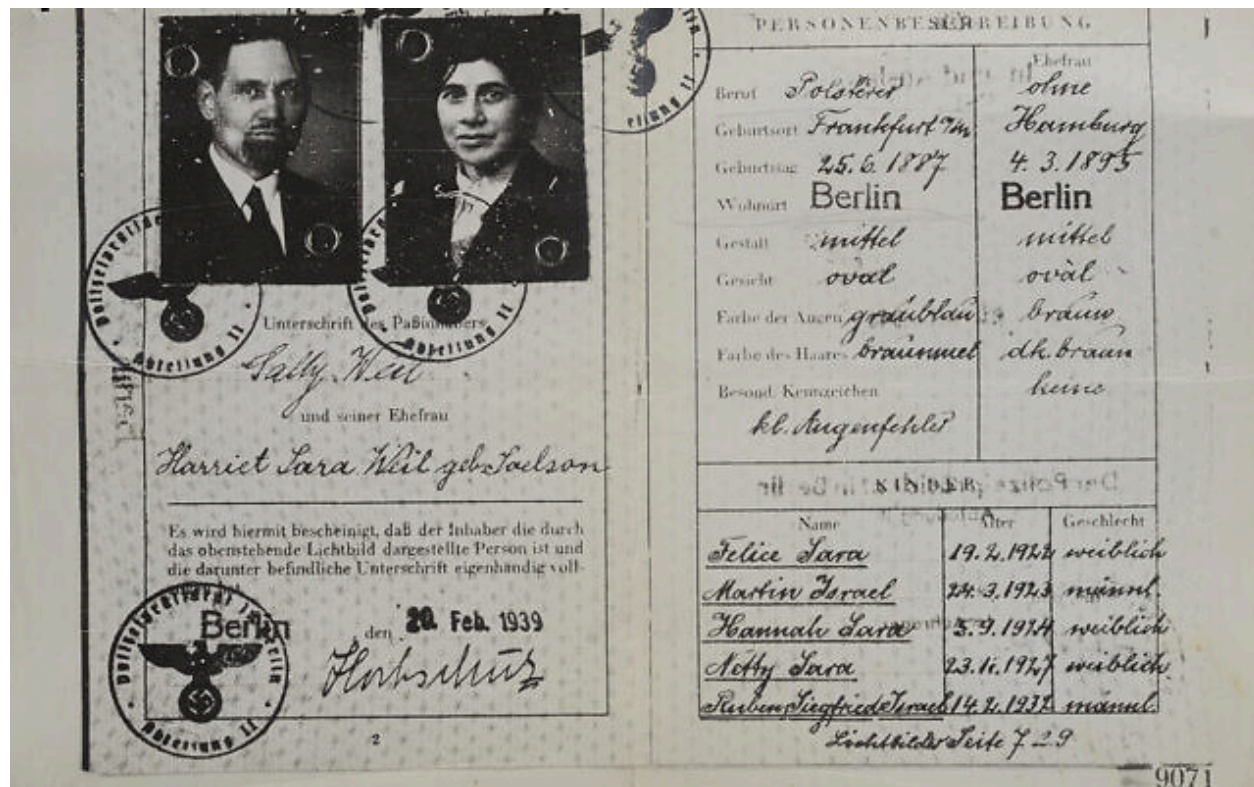 Unterschrift des Paßinhabers
Sally Weil
und seiner Ehefrau
Harriet Sara Weil geb. Saelson
Es wird hiermit bescheinigt, daß der Inhaber die durch
das obenstehende Lichtbild dargestellte Person ist und
die darunter befindliche Unterschrift eigenhändig voll-
Berlin, den 20. Feb. 1939
Polizeipräsident in Berlin
Abteilung II
2
PERSONENBESCHREIBUNG
Ehefrau
Beruf Polsterer ohne
Geburtsort Frankfurt a/m Hamburg
Geburtstag 25.6.1887 4.3.1895
Wohnort Berlin Berlin
Gestalt mittel mittel
Gesicht oval oval
Farbe der Augen graublau braun
Farbe des Haares braunmel dk. braun
Besond. Kennzeichen keine
kl. Augenfehler
KINDER
Name Alter Geschlecht
Felice Sara 19.2.1922 weiblich
Martin Israel 24.3.1923 männl.
Hannah Sara 3.9.1924 weiblich
Netty Sara 23.11.1927 weiblich
Ruben Siegfried Israel 14.2.1932 männl.
Lichtbilder Seite 7 29
9071